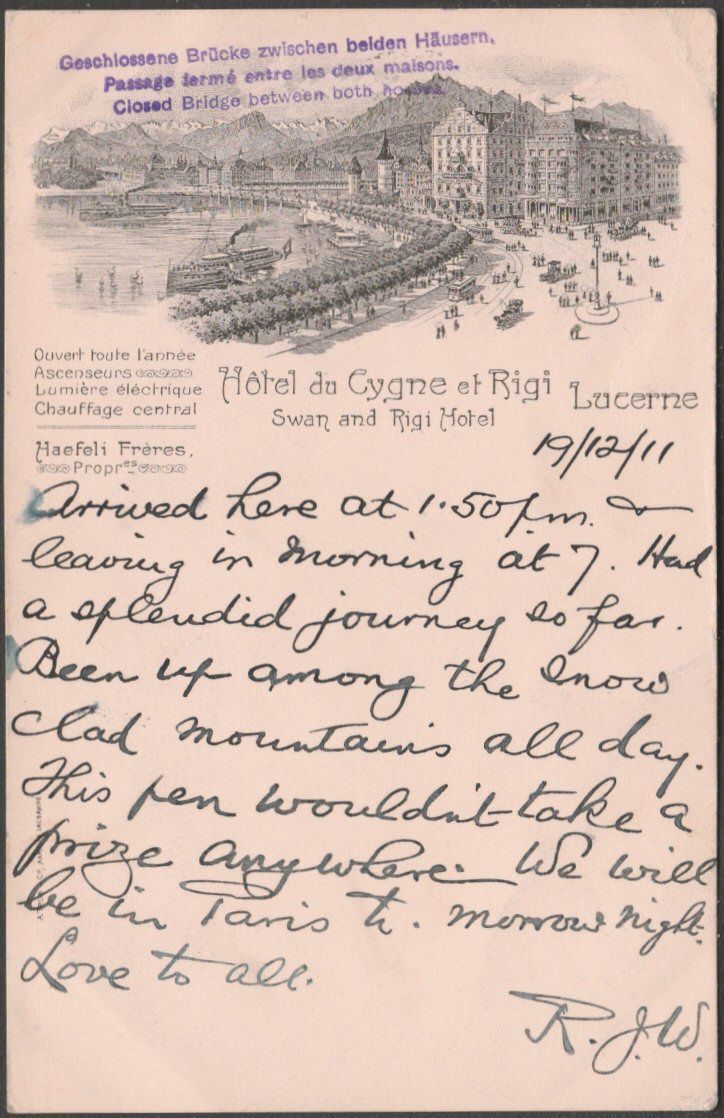 Geschlossene Brücke zwischen beiden Häusern.
Passage fermé entre les deux maisons.
Closed Bridge between both houses.
Ouvert toute l'année
Ascenseurs
Lumière éléctrique
Chauffage central
Haefeli Frères,
Propr.es
Hôtel du Cygne et Rigi Lucerne
Swan and Rigi Hotel
19/12/11
Arrived here at 1.50 p.m. &
leaving in morning at 7. Had
a splendid journey so far.
Been up among the snow
clad mountains all day.
This pen wouldn't take a
prize anywhere. We will
be in Paris to. morrow night.
Love to all.
R. J. W.